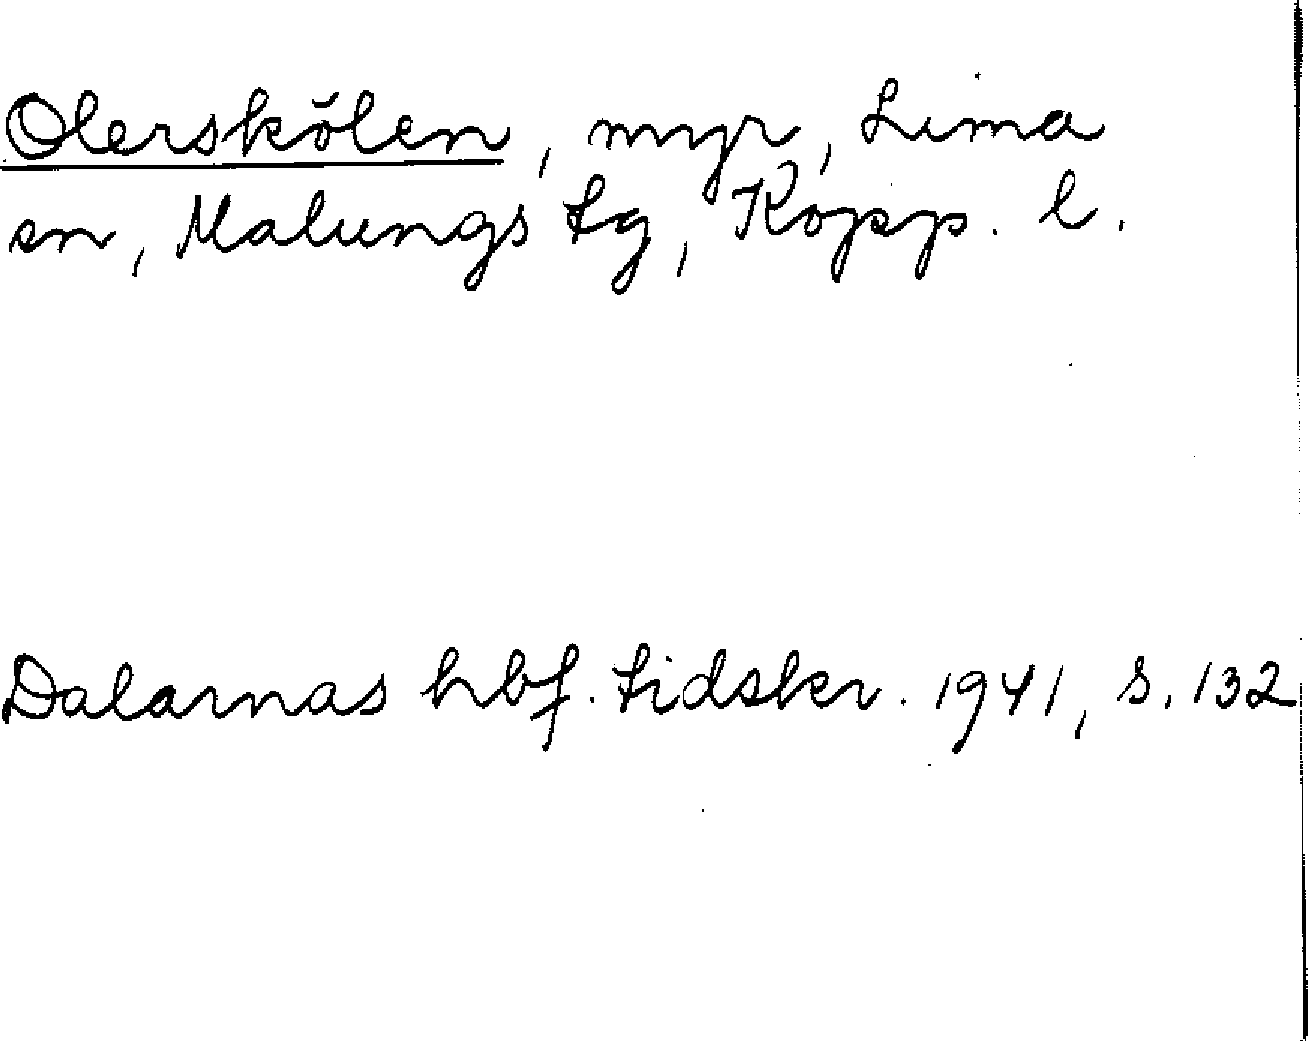 Olerskölen, myr, Lima
sn, Malungs tg, Kopp. l.
Dalarnas hbf. tidskr. 1941, s. 132